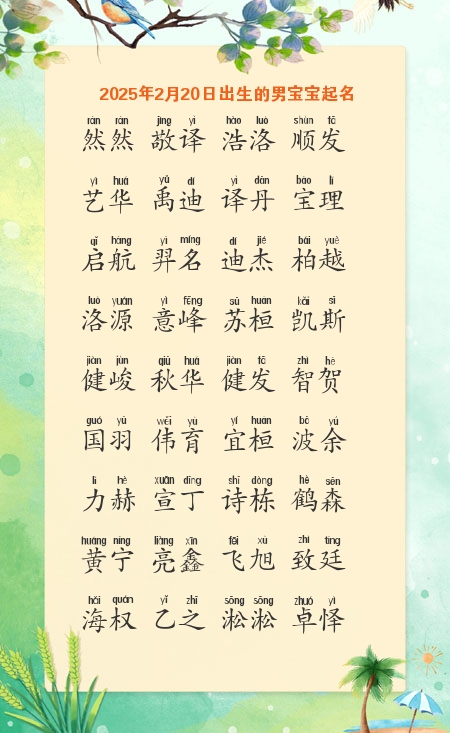 2025年2月20日出生的男宝宝起名
rán rán jìng yì hào luò shùn fā
然然 敬译 浩洛 顺发
yì huá yǔ dí yì dān bǎo lǐ
艺华 禹迪 译丹 宝理
qǐ háng yì míng dí jié bái yuè
启航 羿名 迪杰 柏越
luò yuán yì fēng sū huán kǎi sī
洛源 意峰 苏桓 凯斯
jiàn jùn qiū huá jiàn fā zhì hè
健峻 秋华 健发 智贺
guó yǔ wěi yù yí huán bō yú
国羽 伟育 宜桓 波余
lì hè xuān dīng shī dòng hè sēn
力赫 宣丁 诗栋 鹤森
huáng níng liàng xīn fēi xù zhì tíng
黄宁 亮鑫 飞旭 致廷
hǎi quán yǐ zhī sōng sōng zhuó yì
海权 乙之 淞淞 卓怿